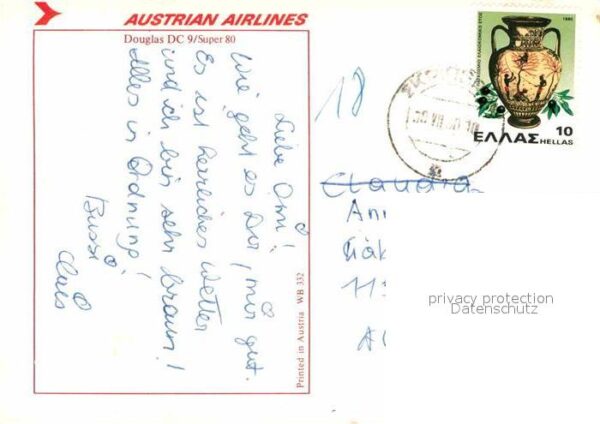 AUSTRIAN AIRLINES
Douglas DC 9/Super 80
Liebe Omi!
Wie geht es Dir, mir gut.
Es ist herrliches Wetter
und ich bin sehr braun!
Alles in Ordnung!
Bussi
Printed in Austria WB 332
18
1980
ΕΛΛΑΣ 10
HELLAS
Claudia
An
11
privacy protection
Datenschutz